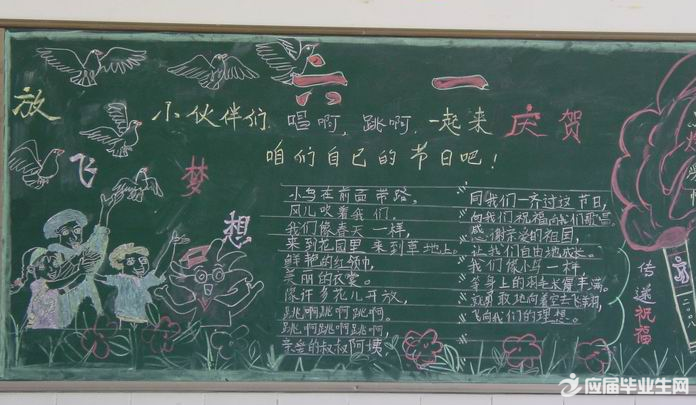 放飞梦想
六一
小伙伴们,唱啊,跳啊,一起来庆贺
咱们自己的节日吧!
小鸟在前面带路,
风儿吹着我们,
我们像春天一样,
来到花园里来到草地上。
鲜艳的红领巾,
美丽的衣裳。
像许多花儿开放,
跳啊跳啊跳啊,
跳啊跳啊跳啊,
亲爱的叔叔阿姨
同我们一齐讨这节日,
向我们祝福向我们歌唱。
感谢亲爱的祖国,
让我们自由地成长。
我们像小鸟一样,
等身上的羽毛长丰满。
就勇敢地向着空去飞翔,
飞向我们的理想。
传递祝福
应届毕业生网